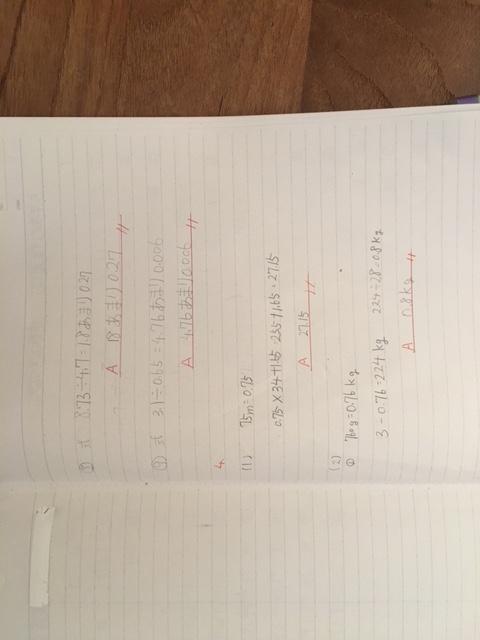 ⑧ 式 8.73÷4.7=1.8あまり0.27
A 1.8あまり0.27
⑨ 式 3.1÷0.65=4.76あまり0.006
A 4.76あまり0.006
4.
(1) 75m=0.75
0.75×34+1.65 25.5+1.65=27.15
A 27.15
(2)
① 760g=0.76kg
3-0.76=2.24kg 2.24÷2.8=0.8kg
A 0.8kg